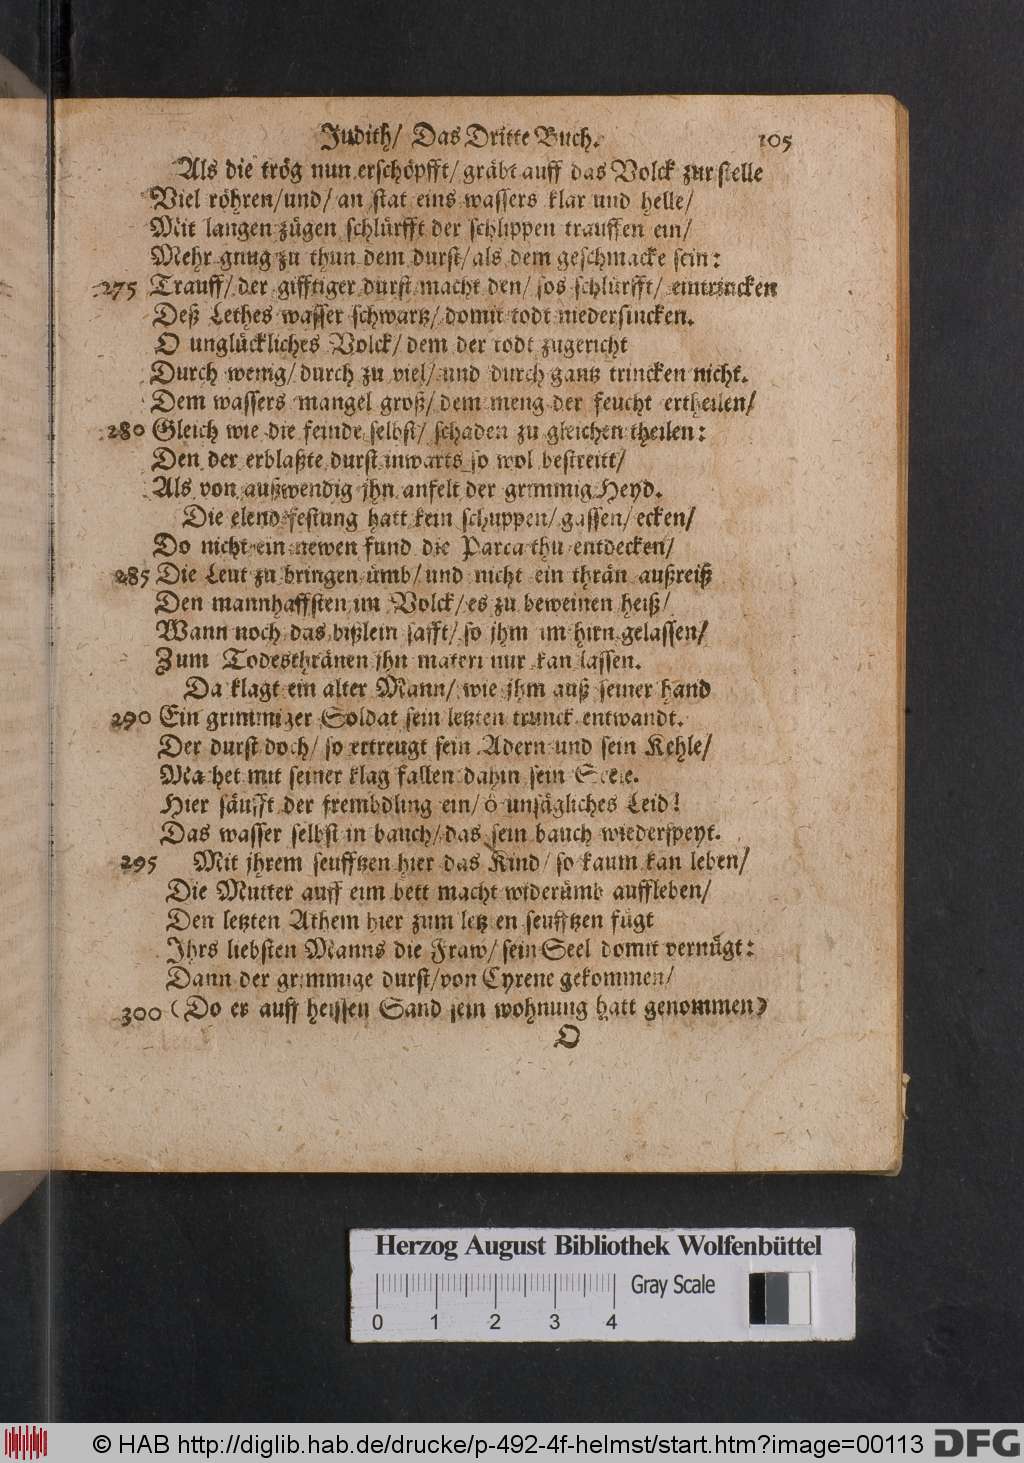 Judith/ Das Dritte Buch. 105
Als die trög nun erschöpfft/ gräbt auff das Volck zur stelle
Viel röhren/und/ an stat eins wassers klar und helle/
Mit langen zügen schlürfft der schlippen trauffen ein/
Mehr gnug zu thun dem durst/ als dem geschmacke sein:
275 Trauff/ der gifftiger durst macht den/ sos schlürfft/ eintrincken
Deß Lethes wasser schwartz/ domit todt niedersincken.
O unglückliches Volck/ dem der todt zugericht
Durch wenig/ durch zu viel/ und durch gantz trincken nicht.
Dem wassers mangel groß/ dem meng der feucht ertheilen/
280 Gleich wie die feinde selbst/ schaden zu gleichen theilen:
Den der erblaßte durst inwarts so wol bestreitt/
Als von außwendig jhn anfelt der grimmig Heyd.
Die elend festung hatt kein schuppen/ gassen/ ecken/
Do nicht ein newen fund die Parca thu entdecken/
285 Die Leut zu bringen ümb/ und nicht ein thrän außreiß
Den mannhafften im Volck/ es zu beweinen heiß/
Wann noch das bißlein safft/ so jhm im hirn gelassen/
Zum Todesthränen jhn materi nur kan lassen.
Da klagt ein alter Mann/ wie jhm auß seiner hand
290 Ein grimmiger Soldat sein letzten trunck entwandt.
Der durst doch/ so ertreugt sein Adern und sein Kehle/
Machet mit seiner klag fallen dahin sein Seele.
Hier säufft der frembdling ein/ ô unsägliches Leid!
Das wasser selbst in bauch/ das sein bauch wiederspeyt.
295 Mit jhrem seufftzen hier das Kind/ so kaum kan leben/
Die Mutter auff eim bett macht widerümb auffleben/
Den letzten Athem hier zum letzten seufftzen fügt
Jhrs liebsten Manns die Fraw/ sein Seel domit vernügt:
Dann der grimmige durst/ von Cyrene gekommen/
300 (Do er auff heissen Sand sein wohnung hatt genommen)
O
Herzog August Bibliothek Wolfenbüttel
Gray Scale
0 1 2 3 4
© HAB http://diglib.hab.de/drucke/p-492-4f-helmst/start.htm?image=00113 DFG